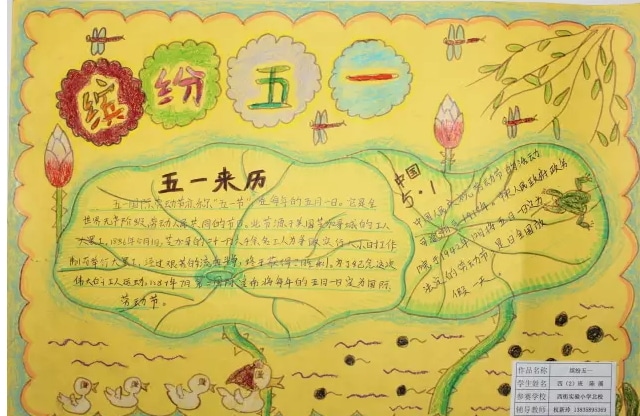 缤纷五一
五一来历
五一国际劳动节亦称"五一节"在每年的五月一日。它是全
世界无产阶级、劳动人民共同的节日。此节源于美国芝加哥城的工人
大罢工。1886年5月1日,芝加哥的二十一万六千余名工人为争取实行八小时工作
制而举行大罢工,经过艰苦的流血斗争,终于获得了胜利。为了纪念这次
伟大的工人运动,1889年7月第二国际宣布将每年的五月一日定为国际
劳动节。
中国
5.1
中国人民庆祝劳动节的活动
法定的劳动节,是日全国放
假一天。
作品名称 缤纷五一
学生姓名 西(2)班
参赛学校 西街实验小学北校
辅导教师